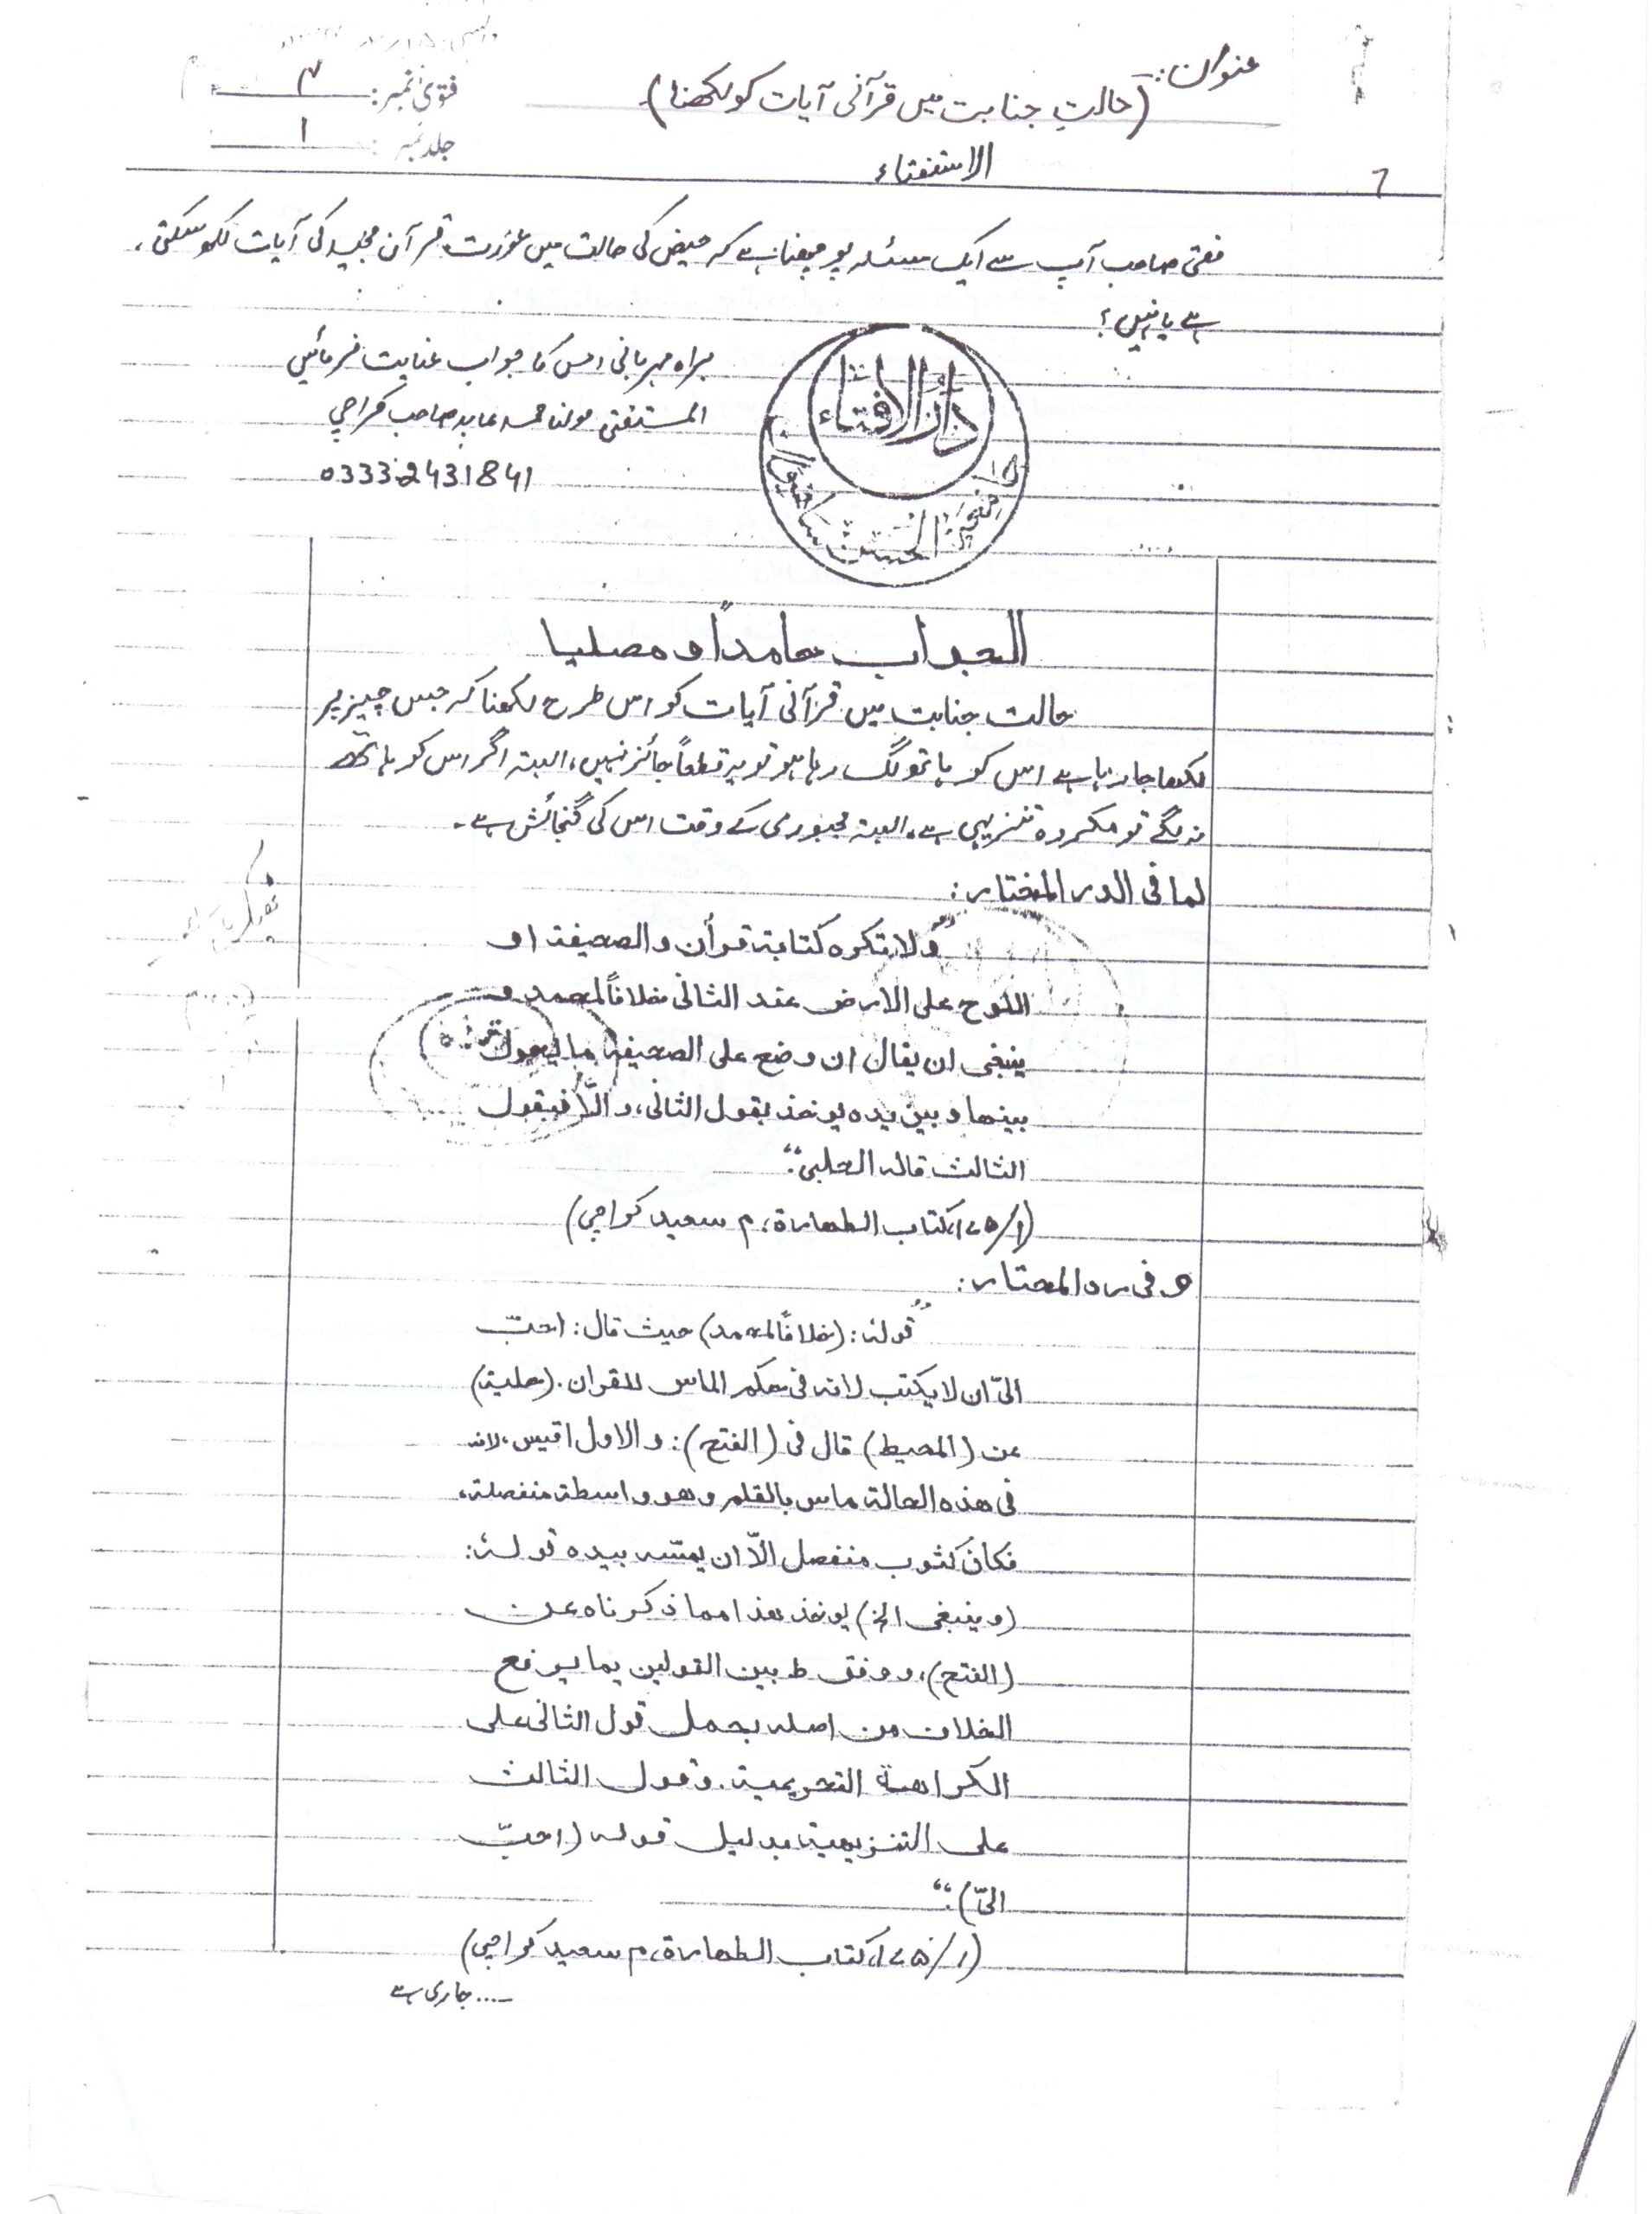 عنوان: (حالتِ جنابت میں قرآنی آیات کو لکھنا)
فتویٰ نمبر: ۳
جلد نمبر: ۱
الاستفتاء
مفتی صاحب آپ سے ایک مسئلہ پوچھنا ہے کہ حیض کی حالت میں عورت قرآن مجید کی آیات لکھ سکتی
ہے یا نہیں؟
براہ مہربانی اس کا جواب عنایت فرمائیں
المستفتی مولنا محمد عابد صاحب کراچی
0333-2431841
دار الافتاء
الجواب حامداً و مصلیا
حالت جنابت میں قرآنی آیات کو اس طرح لکھنا کہ جس چیز پر
لکھا جا رہا ہے اس کو ہاتھ لگ رہا ہو تو یہ قطعاً جائز نہیں، البتہ اگر اس کو ہاتھ
نہ لگے تو مکروہ تنزیہی ہے۔ البتہ مجبوری کے وقت اس کی گنجائش ہے۔
لما فی الدر المختار:
”ولا تکره کتابة قرأن والصحیفة او
اللوح علی الارض عند الثانی خلافاً لمحمد و
ینبغی ان یقال ان وضع علی الصحیفة ما یحول
بینها و بین یده یوخذ بقول الثانی، والّا فبقول
الثالث قاله الحلبی“
(۱/۱۷۵، کتاب الطهارة، م سعید کراچی)
و فی رد المحتار:
”قوله: (خلافاً لمحمد) حیث قال: احبّ
الیّ ان لا یکتب لانه فی حکم الماس للقران. (حلیة)
عن (المحیط) قال فی (الفتح): والاول اقیس، لانه
فی هذه الحالة ماس بالقلم وهو واسطة منفصلة،
فکان کثوب منفصل الّا ان یمسّه بیده قوله:
(وینبغی الخ) یوخذ هذا مما ذکرناه عن
(الفتح)، ووفق ط بین القولین بما یرفع
الخلاف من اصله بحمل قول الثانی علی
الکراهة التحریمیة. وقول الثالث
علی التنزیهیة بدلیل قوله (احبّ
الیّ)“
(۱/۱۷۵، کتاب الطهارة، م سعید کراچی)
.... جاری ہے